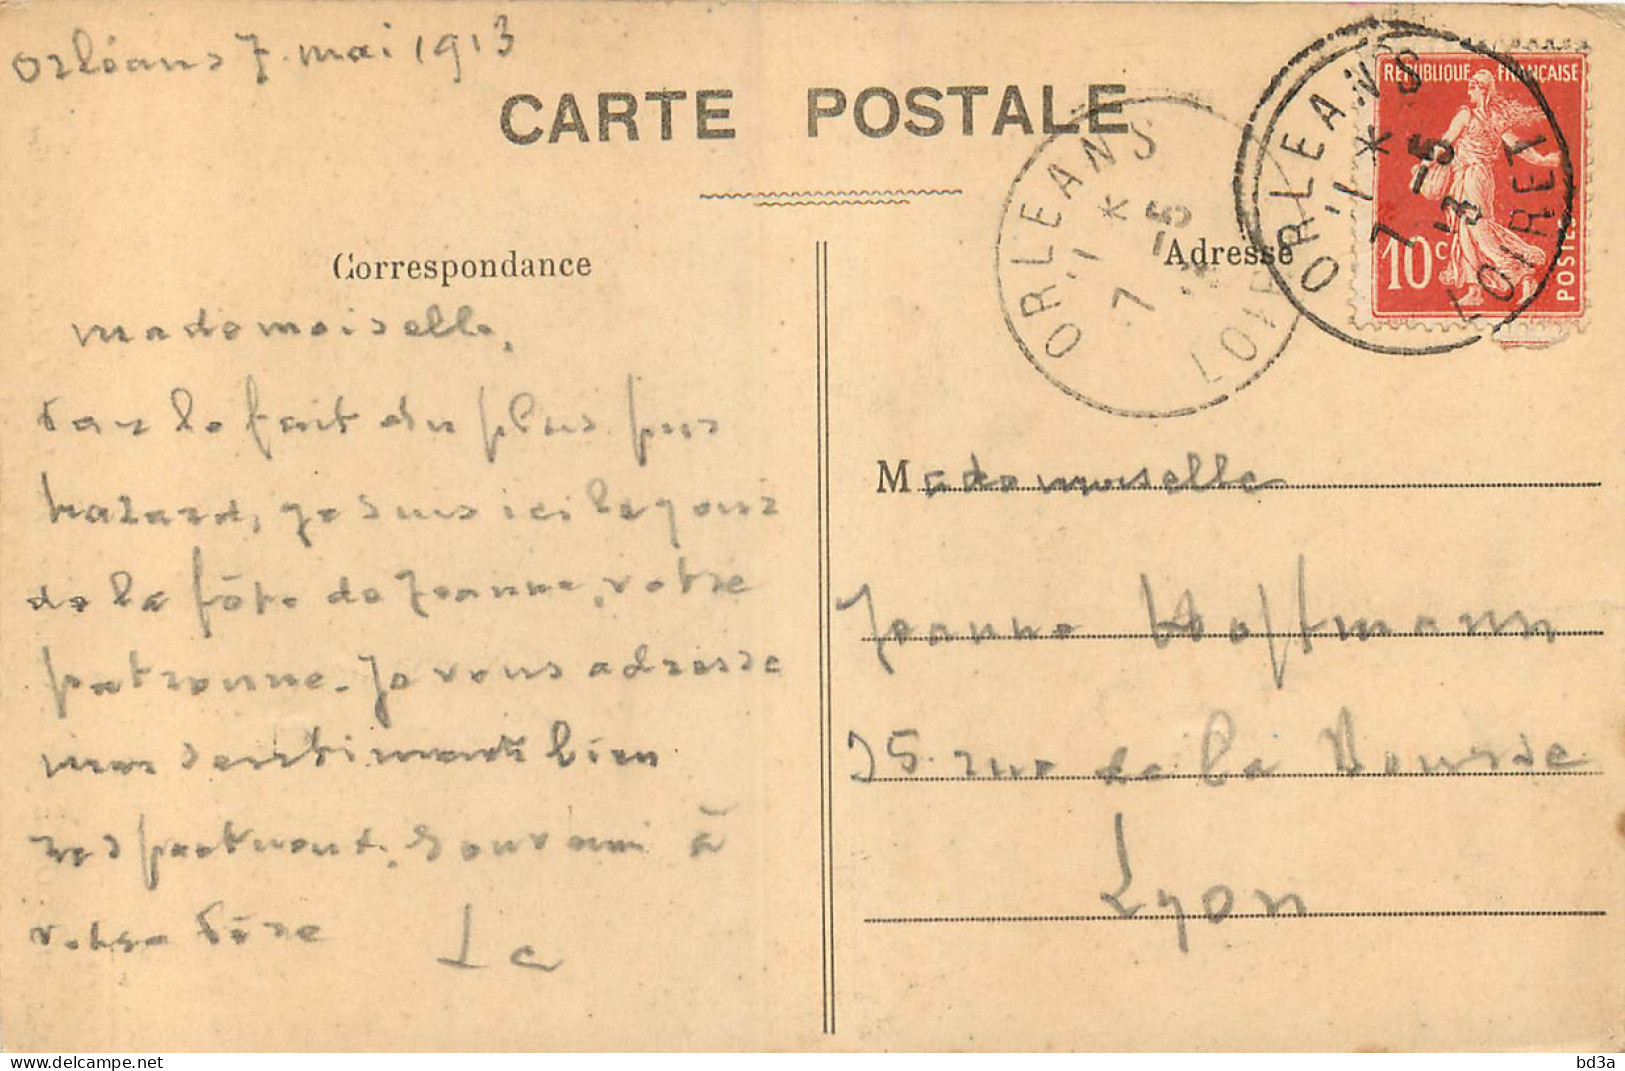 Orléans 7. mai 1913
CARTE POSTALE
Correspondance
Mademoiselle,
Par le fait du plus pur
hazard, je suis ici le jour
de la fête de Jeanne, votre
patronne. Je vous adresse
mes sentiments bien
respectueux. Souvenir à
votre Père
Adresse
Mademoiselle
Jeanne Hoffmann
rue de la Bourse
Lyon
ORLEANS
7 -5
LOIRET
ORLEANS
7 -5
13
LOIRET
REPUBLIQUE FRANÇAISE
10c
POSTES
bd3a